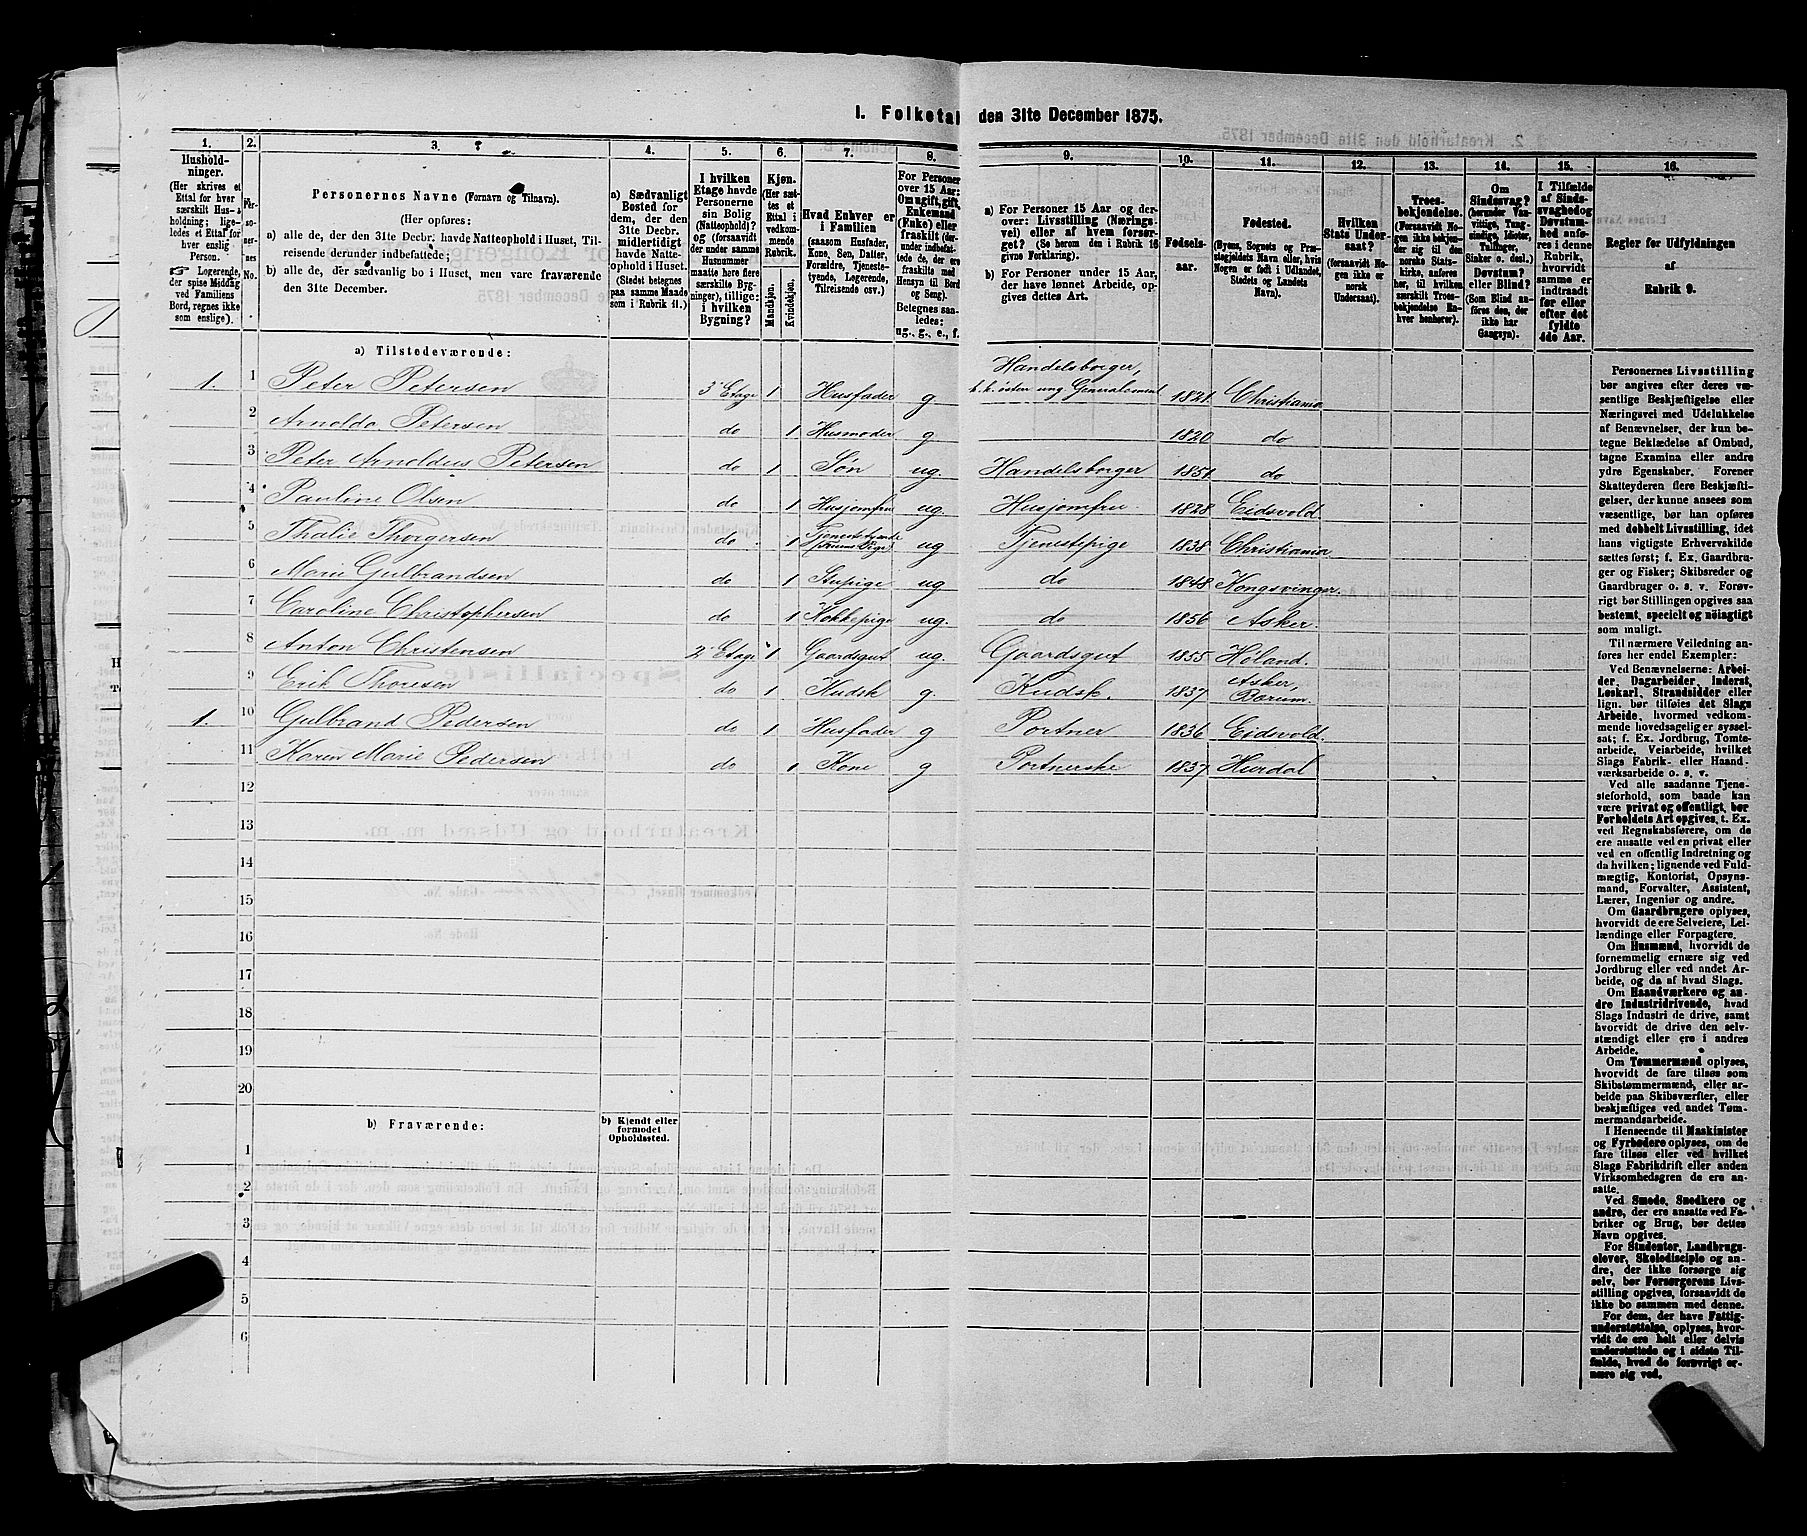 I. Folketal den 31te December 1875.
1. 2. 3. 4. 5. 6. 7. 8. 9. 10. 11. 12. 13. 14. 15. 16.
Husholdninger.
(Her skrives et
Ettal for hver
særskilt Husholdning; ligeledes
et Ettal for
hver enslig
Person.
Logerende,
der spise Middag
ved Familiens
Bord, regnes ikke
som enslige).
Personernes No.
Personernes Navne (Fornavn og Tilnavn).
(Her opføres:
a) alle de, der den 31te Decbr. havde Natteophold i Huset, Tilreisende
derunder indbefattede;
b) alle de, der sædvanlig bo i Huset, men vare fraværende
den 31te December.
a) Sædvanligt
Bosted for
dem, der den
31te Decbr.
midlertidigt
havde Natteophold
i Huset.
(Stedet betegnes
paa samme Maade
som i Rubrik 11.)
I hvilken
Etage havde
Personerne
sin Bolig
(Natteophold)?
og (forsaavidt
der under samme
Husnummer
maatte høre flere
særskilte Bygninger),
tillige:
i hvilken
Bygning?
Kjøn.
(Her sættes
et
Ettal i
vedkommende
Rubrik.
Mandkjøn.
Kvindekjøn.
Hvad Enhver er
i Familien
(saasom Husfader,
Kone, Søn, Datter,
Forældre, Tjenestetyende,
Logerende,
Tilreisende osv.)
For Personer
over 15 Aar:
Om ugift, gift,
Enkemand
(Enke) eller
fraskilt (derunder
indbefattede
de, der ere
fraskilte med
Hensyn til Bord
og Seng).
Betegnes saaledes:
ug., g., e., f.
a) For Personer 15 Aar og derover:
Livsstilling (Næringsvei)
eller af hvem forsørget?
(Se herom den i Rubrik 16
givne Forklaring).
b) For Personer under 15 Aar,
der have lønnet Arbeide, opgives
dettes Art.
Fødselsaar.
Fødested.
(Byens, Sognets og Præstegjeldets
Navn eller, hvis
Nogen er født i Udlandet,
Stedets og Landets
Navn).
Hvilken
Stats Undersaat?
(forsaavidt Nogen
ikke er
norsk
Undersaat).
Troesbekjendelse.
(Forsaavidt Nogen
ikke bekjender
sig til den
norske Statskirke,
anføres
her, til hvilken
særskilt Troesbekjendelse
Enhver
henhører).
Om
Sindssvag?
(herunder Vanvittige,
Tungsindige,
Idioter,
Tullinger,
Sinker o. desl.)
Døvstum?
eller Blind?
(Som Blind anføres
den, der
ikke har
Gangsyn).
I Tilfælde
af Sindssvaghed
og
Døvstumhed
anføres
i denne
Rubrik,
hvorvidt
samme er
indtraadt
før eller
efter det
fyldte
4de Aar.
Regler for Udfyldningen
af
Rubrik 9.
a) Tilstedeværende:
1. 1 Peter Petersen 3 Etage 1 Husfader g Handelsborger, 1821 Christiania
2 Arnolda Petersen do 1 Husmoder g 1820 do
3 Peter Arnoldus Petersen do 1 Søn ug. Handelsborger 1851 do
4 Pauline Olsen do 1 Husjomfru ug. Husjomfru. 1828 Eidsvold
5 Thalie Thorgersen do 1 Tjenestetyende ug Tjenestpige 1838 Christiania
6 Marie Gulbrandsen do 1 Stupige ug do 1848 Kongsvinger.
7 Caroline Christophersen do 1 Kokkepige ug. do 1856 Asker.
8 Anton Christensen 2 Etage 1 Gaardsgut ug. Gaardsgut 1855 Høland.
9 Erik Thoresen do 1 Kudsk g. Kudsk. 1837 Asker, Bærum.
1. 10 Gulbrand Pedersen do 1 Husfader g Portner 1836 Eidsvold.
11 Karen Marie Pedersen do 1 Kone g Portnerske 1837 Hurdal
12
13
14
16
17
18
19
20
b) Fraværende:
b) Kjendt eller
formodet
Opholdssted.
1
2
3
4
5
6
Personernes Livsstilling
bør angives efter deres væsentlige
Beskjæftigelse eller
Næringsvei med Udelukkelse
af Benævnelser, der kun betegne
Beklædelse af Ombud,
tagne Examina eller andre
ydre Egenskaber. Forener
Skatteyderen flere Beskjæftigelser,
der kunne ansees som
væsentlige, bør han opføres
med dobbelt Livsstilling, idet
hans vigtigste Erhvervskilde
sættes først; f. Ex. Gaardbruger
og Fisker; Skibsreder og
Gaardbruger o. s. v. Forøvrigt
bør Stillingen opgives saa
bestemt, specielt og nøiagtigt
som muligt.
Til nærmere Veiledning anføres
her endel Exempler:
Ved Benævnelserne: Arbeider,
Dagarbeider, Inderst,
Løskarl, Strandsidder eller
lign. bør tilføies det Slags
Arbeide, hvormed vedkommende
hovedsagelig er sysselsat;
f. Ex. Jordbrug, Tomtearbeide,
Veiarbeide, hvilket
Slags Fabrik- eller Haandværksarbeide
o. s. v.
Ved alle saadanne Tjenesteforhold,
som baade kan
være privat og offentligt, bør
Forholdets Art opgives, t. Ex.
ved Regnskabsførere, om de
ere ansatte ved en privat eller
ved en offentlig Indretning og
da hvilken; lignende ved Fuldmægtig,
Kontorist, Opsynsmand,
Forvalter, Assistent,
Lærer, Ingeniør og andre.
Om Gaardbrugere oplyses,
hvorvidt de ere Selveiere, Leilændinge
eller Forpagtere.
Om Husmænd, hvorvidt de
fornemmelig ernære sig ved
Jordbrug eller ved andet Arbeide,
og da af hvad Slags.
Om Haandværkere og andre
Industridrivende, hvad
Slags Industri de drive, samt
hvorvidt de drive den selvstændigt
eller ere i andres
Arbeide.
Om Tømmermænd oplyses,
hvorvidt de fare tilsøs som
Skibstømmermænd, eller arbeide
paa Skibsværfter, eller
beskjæftiges ved andet Tømmermandsarbeide.
I Henseende til Maskinister
og Fyrbødere oplyses, om de
fare tilsøs eller ved hvilket
Slags Fabrikdrift eller anden
Virksomhedsgren de ere ansatte.
Ved Smede, Snedkere og
andre, der ere ansatte ved Fabriker
og Brug, bør dettes
Navn opgives.
For Studenter, Landbrugselever,
Skoledisciple og andre,
der ikke forsørge sig
selv, bør Forsørgerens Livsstilling
opgives, forsaavidt de
ikke bo sammen med denne.
For dem, der have Fattigunderstøttelse,
oplyses, hvorvidt
de ere helt eller delvis
understøttede og i sidste Tilfælde,
hvad de forøvrigt ernære
sig ved.